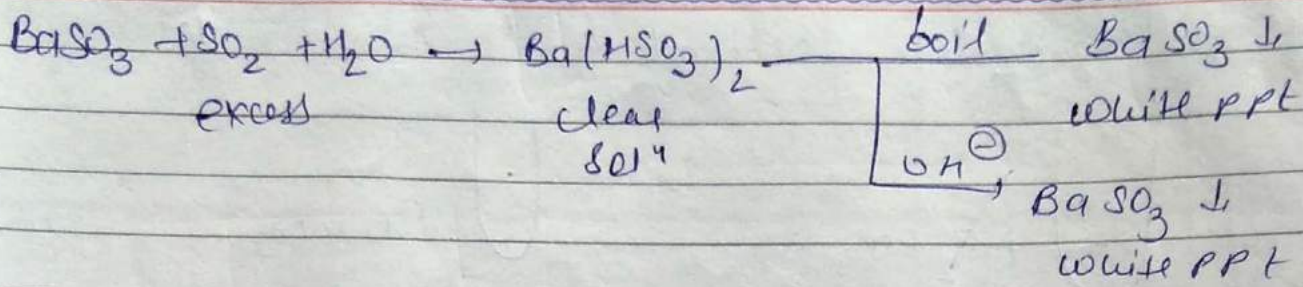 BaSO₃ + SO₂ + H₂O → Ba(HSO₃)₂ boil BaSO₃ ↓
excess clear white ppt
solⁿ OH⊖
BaSO₃ ↓
white ppt